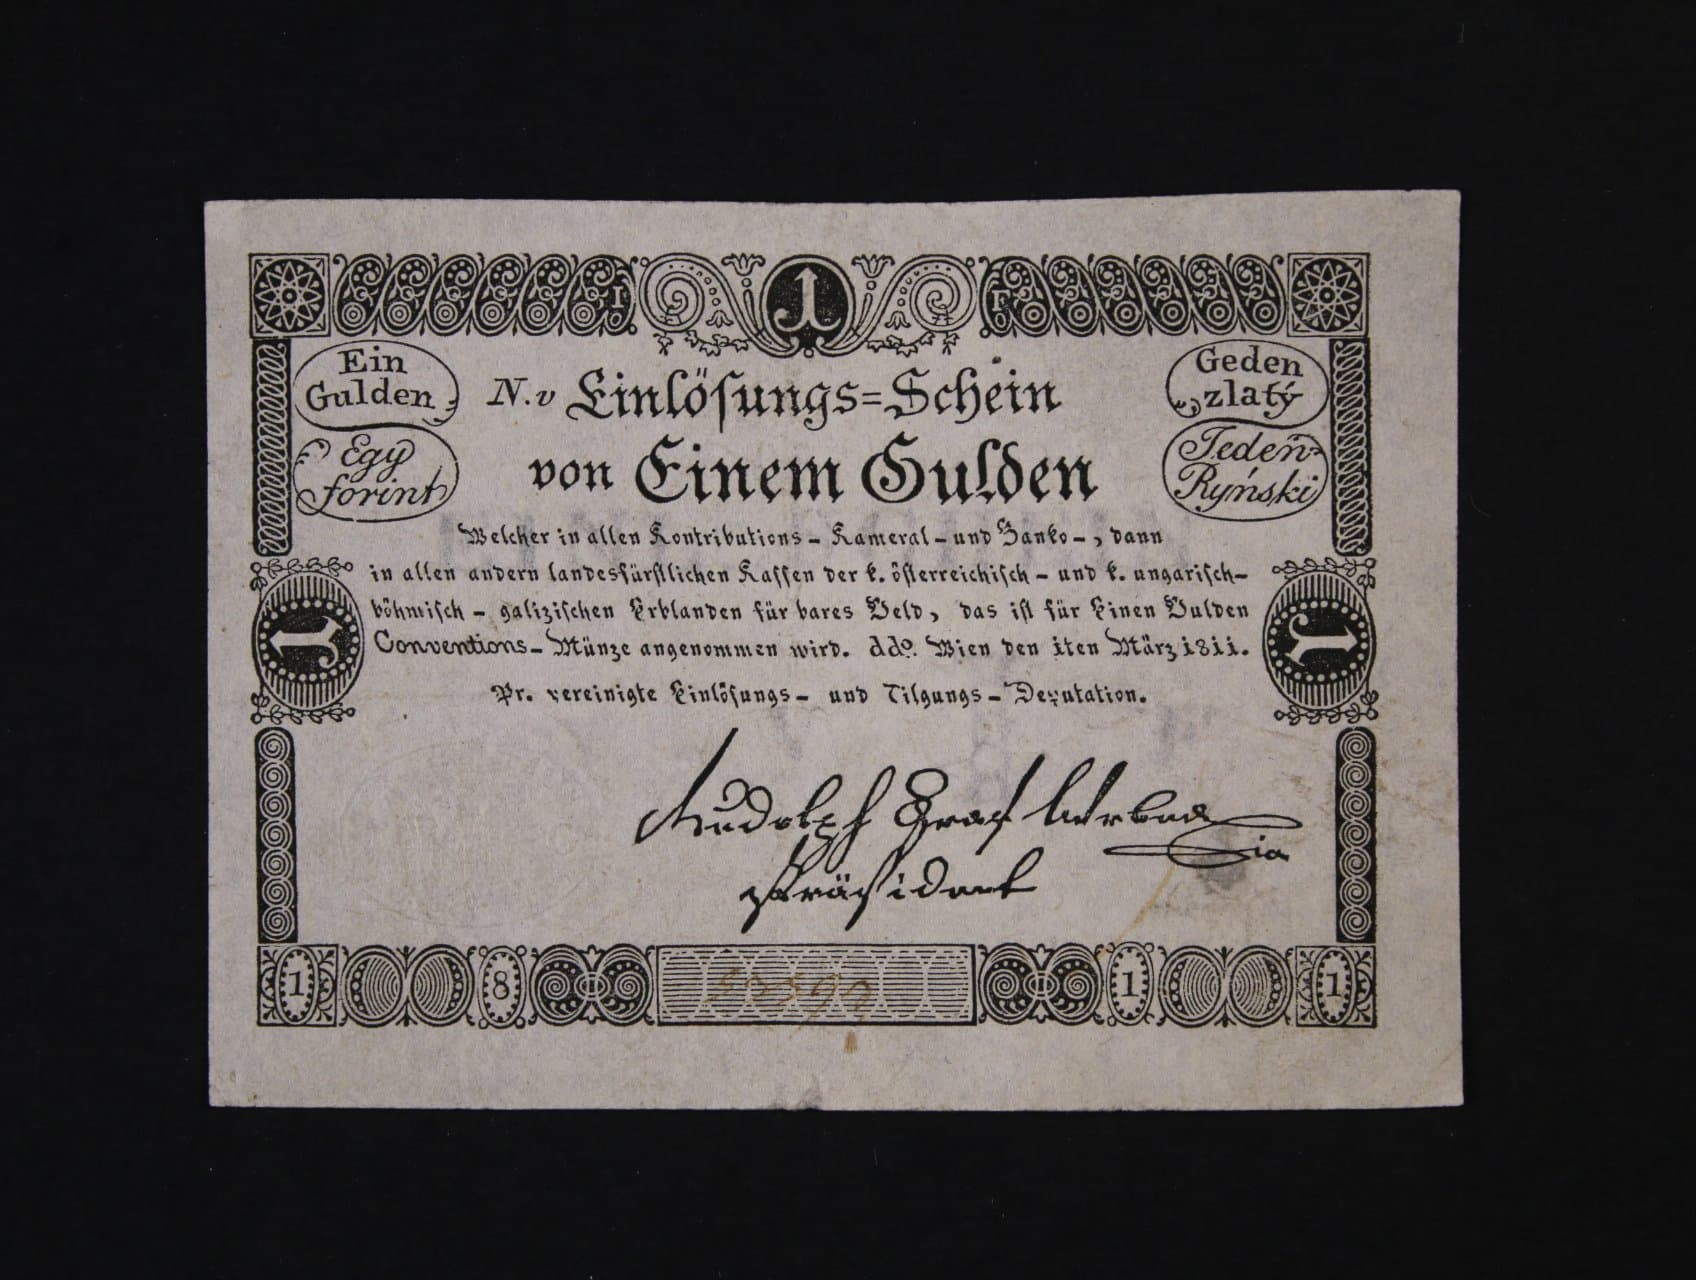 1
Ein
Gulden
Egy
forint
Geden
zlatý
Jeden
Ryński
N. v Einlöſungs=Schein
von Einem Gulden
Welcher in allen Kontributions- Kameral- und Banko-, dann
in allen andern landesfürſtlichen Kaſſen der k. öſterreichiſch- und k. ungariſch-
böhmiſch- galiziſchen Erblanden für bares Geld, das iſt für Einen Gulden
Conventions- Münze angenommen wird. ddo. Wien den 1ten März 1811.
Pr. vereinigte Einlöſungs- und Tilgungs- Deputation.
1
1
Rudolph Graf Wrbna
Präſident
1 8 1 1